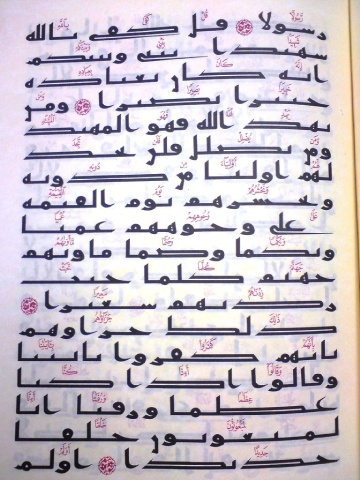 رسولا قل كفى بالله
شهيدا بيني وبينكم
انه كان بعباده
خبيرا بصيرا ومن
يهد الله فهو المهتد
ومن يضلل فلن تجد
لهم اوليا من دونه
ونحشرهم يوم القيمه
على وجوههم عميا
وبكما وصما ماويهم
جهنم كلما خبت
زدنهم سعيرا
ذلك جزاوهم
بانهم كفروا بايتنا
وقالوا اذا كنا
عظما ورفتا انا
لمبعوثون خلقا
جديدا اولم